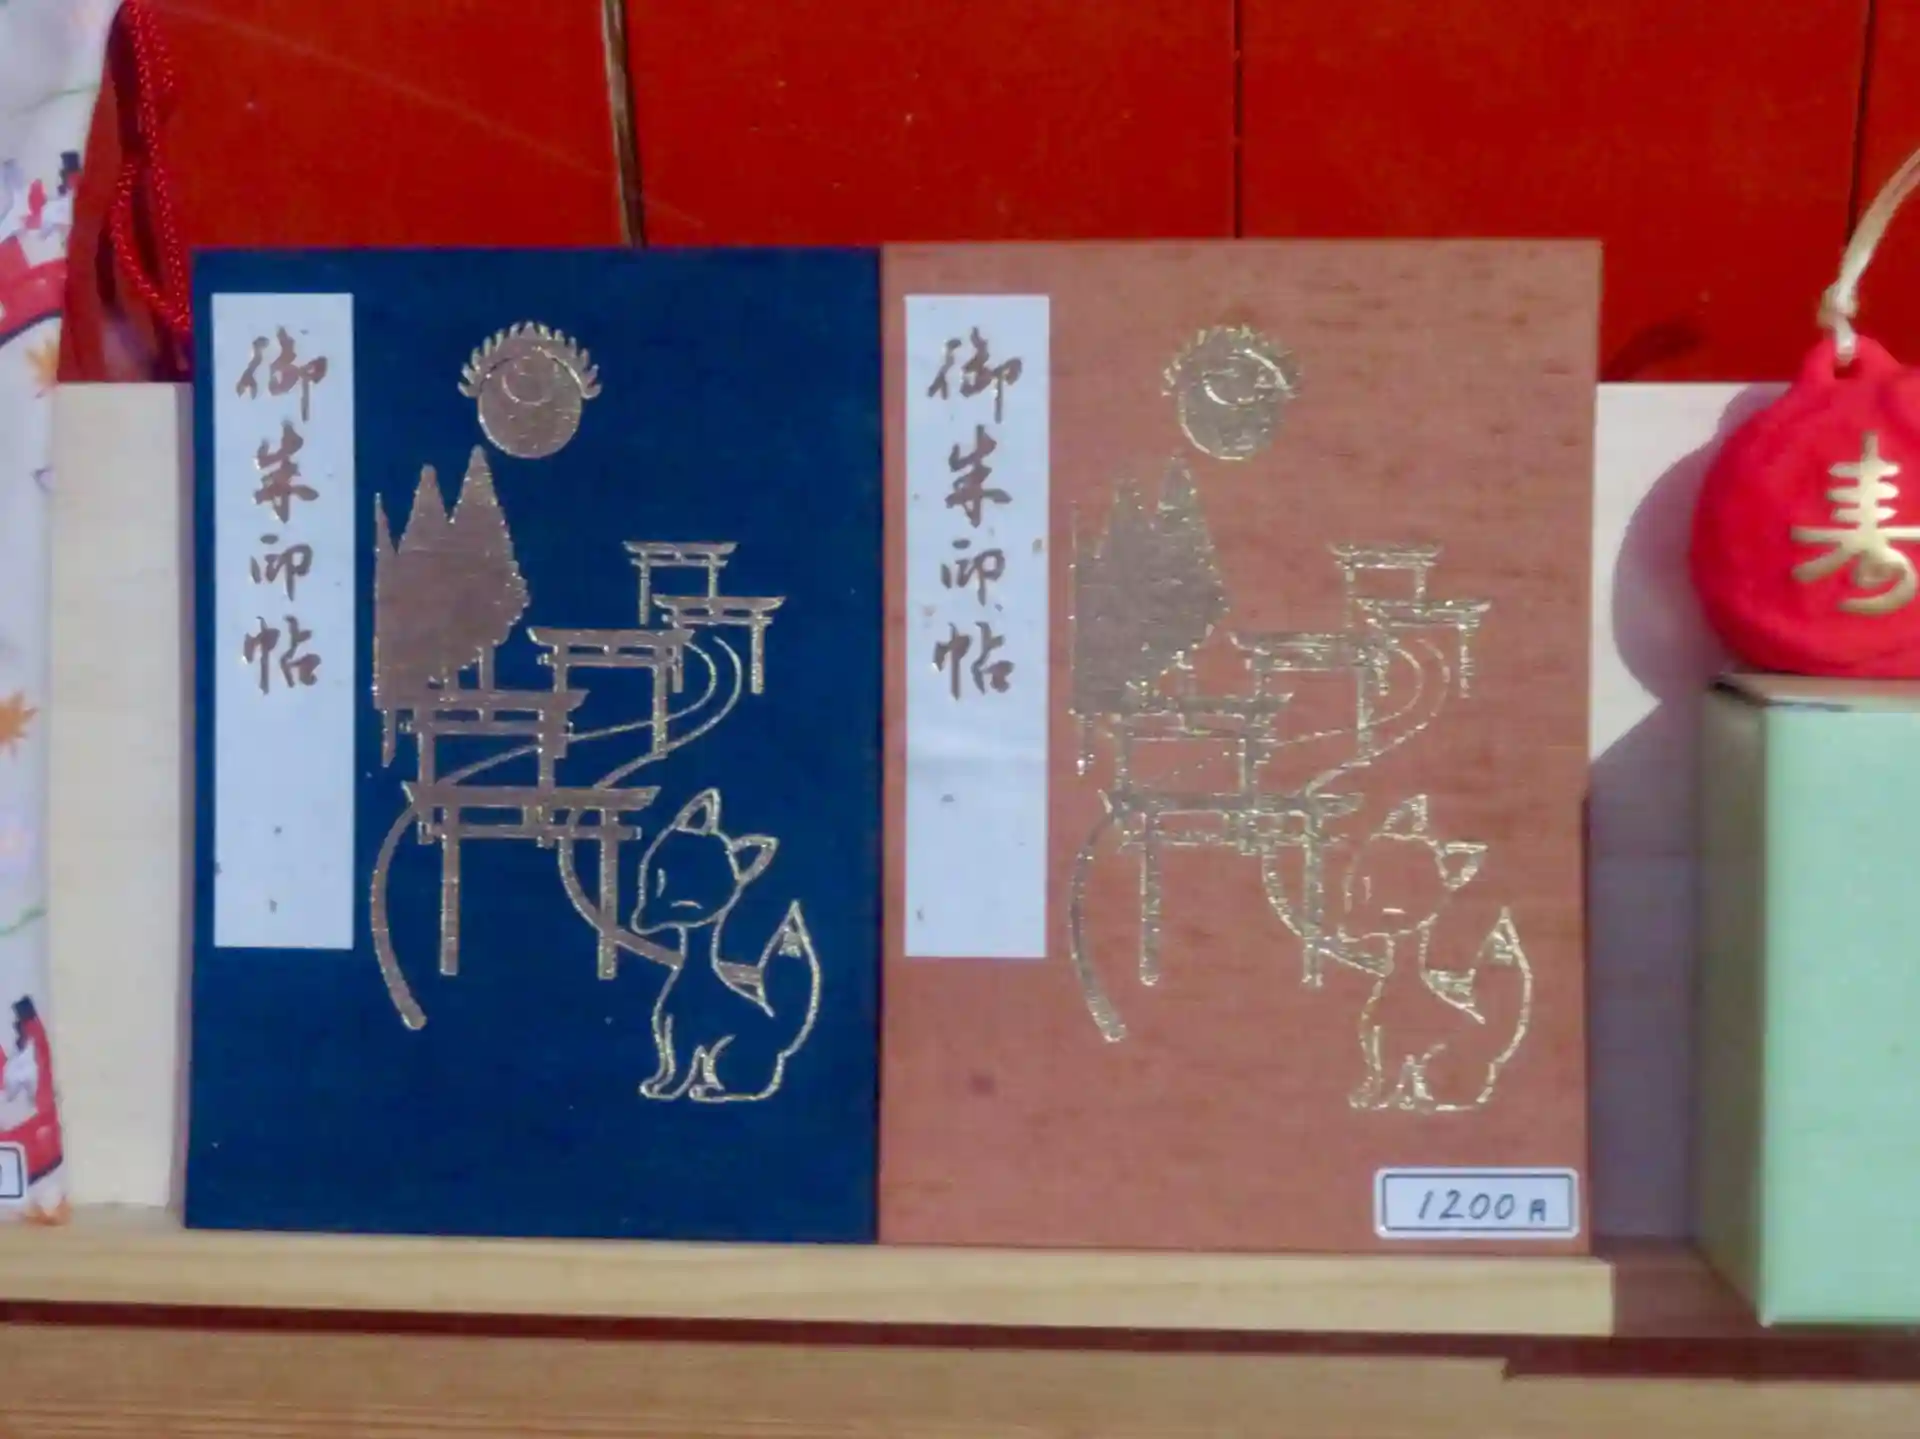 御朱印帖
御朱印帖
1200円
寿